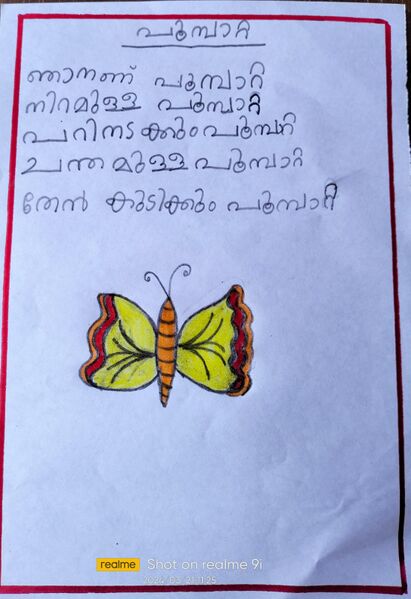 പൂമ്പാറ്റ
ഞാനണ് പൂമ്പാറ്റി
നിറമുള്ള പൂമ്പാറ്റ
പറിനടക്കും പൂമ്പറ്റി
ചന്തമുള്ള പൂമ്പാറ്റി
തേൻ കുടിക്കും പൂമ്പാറ്റി
realme Shot on realme 9i
2024.03.21 11:25